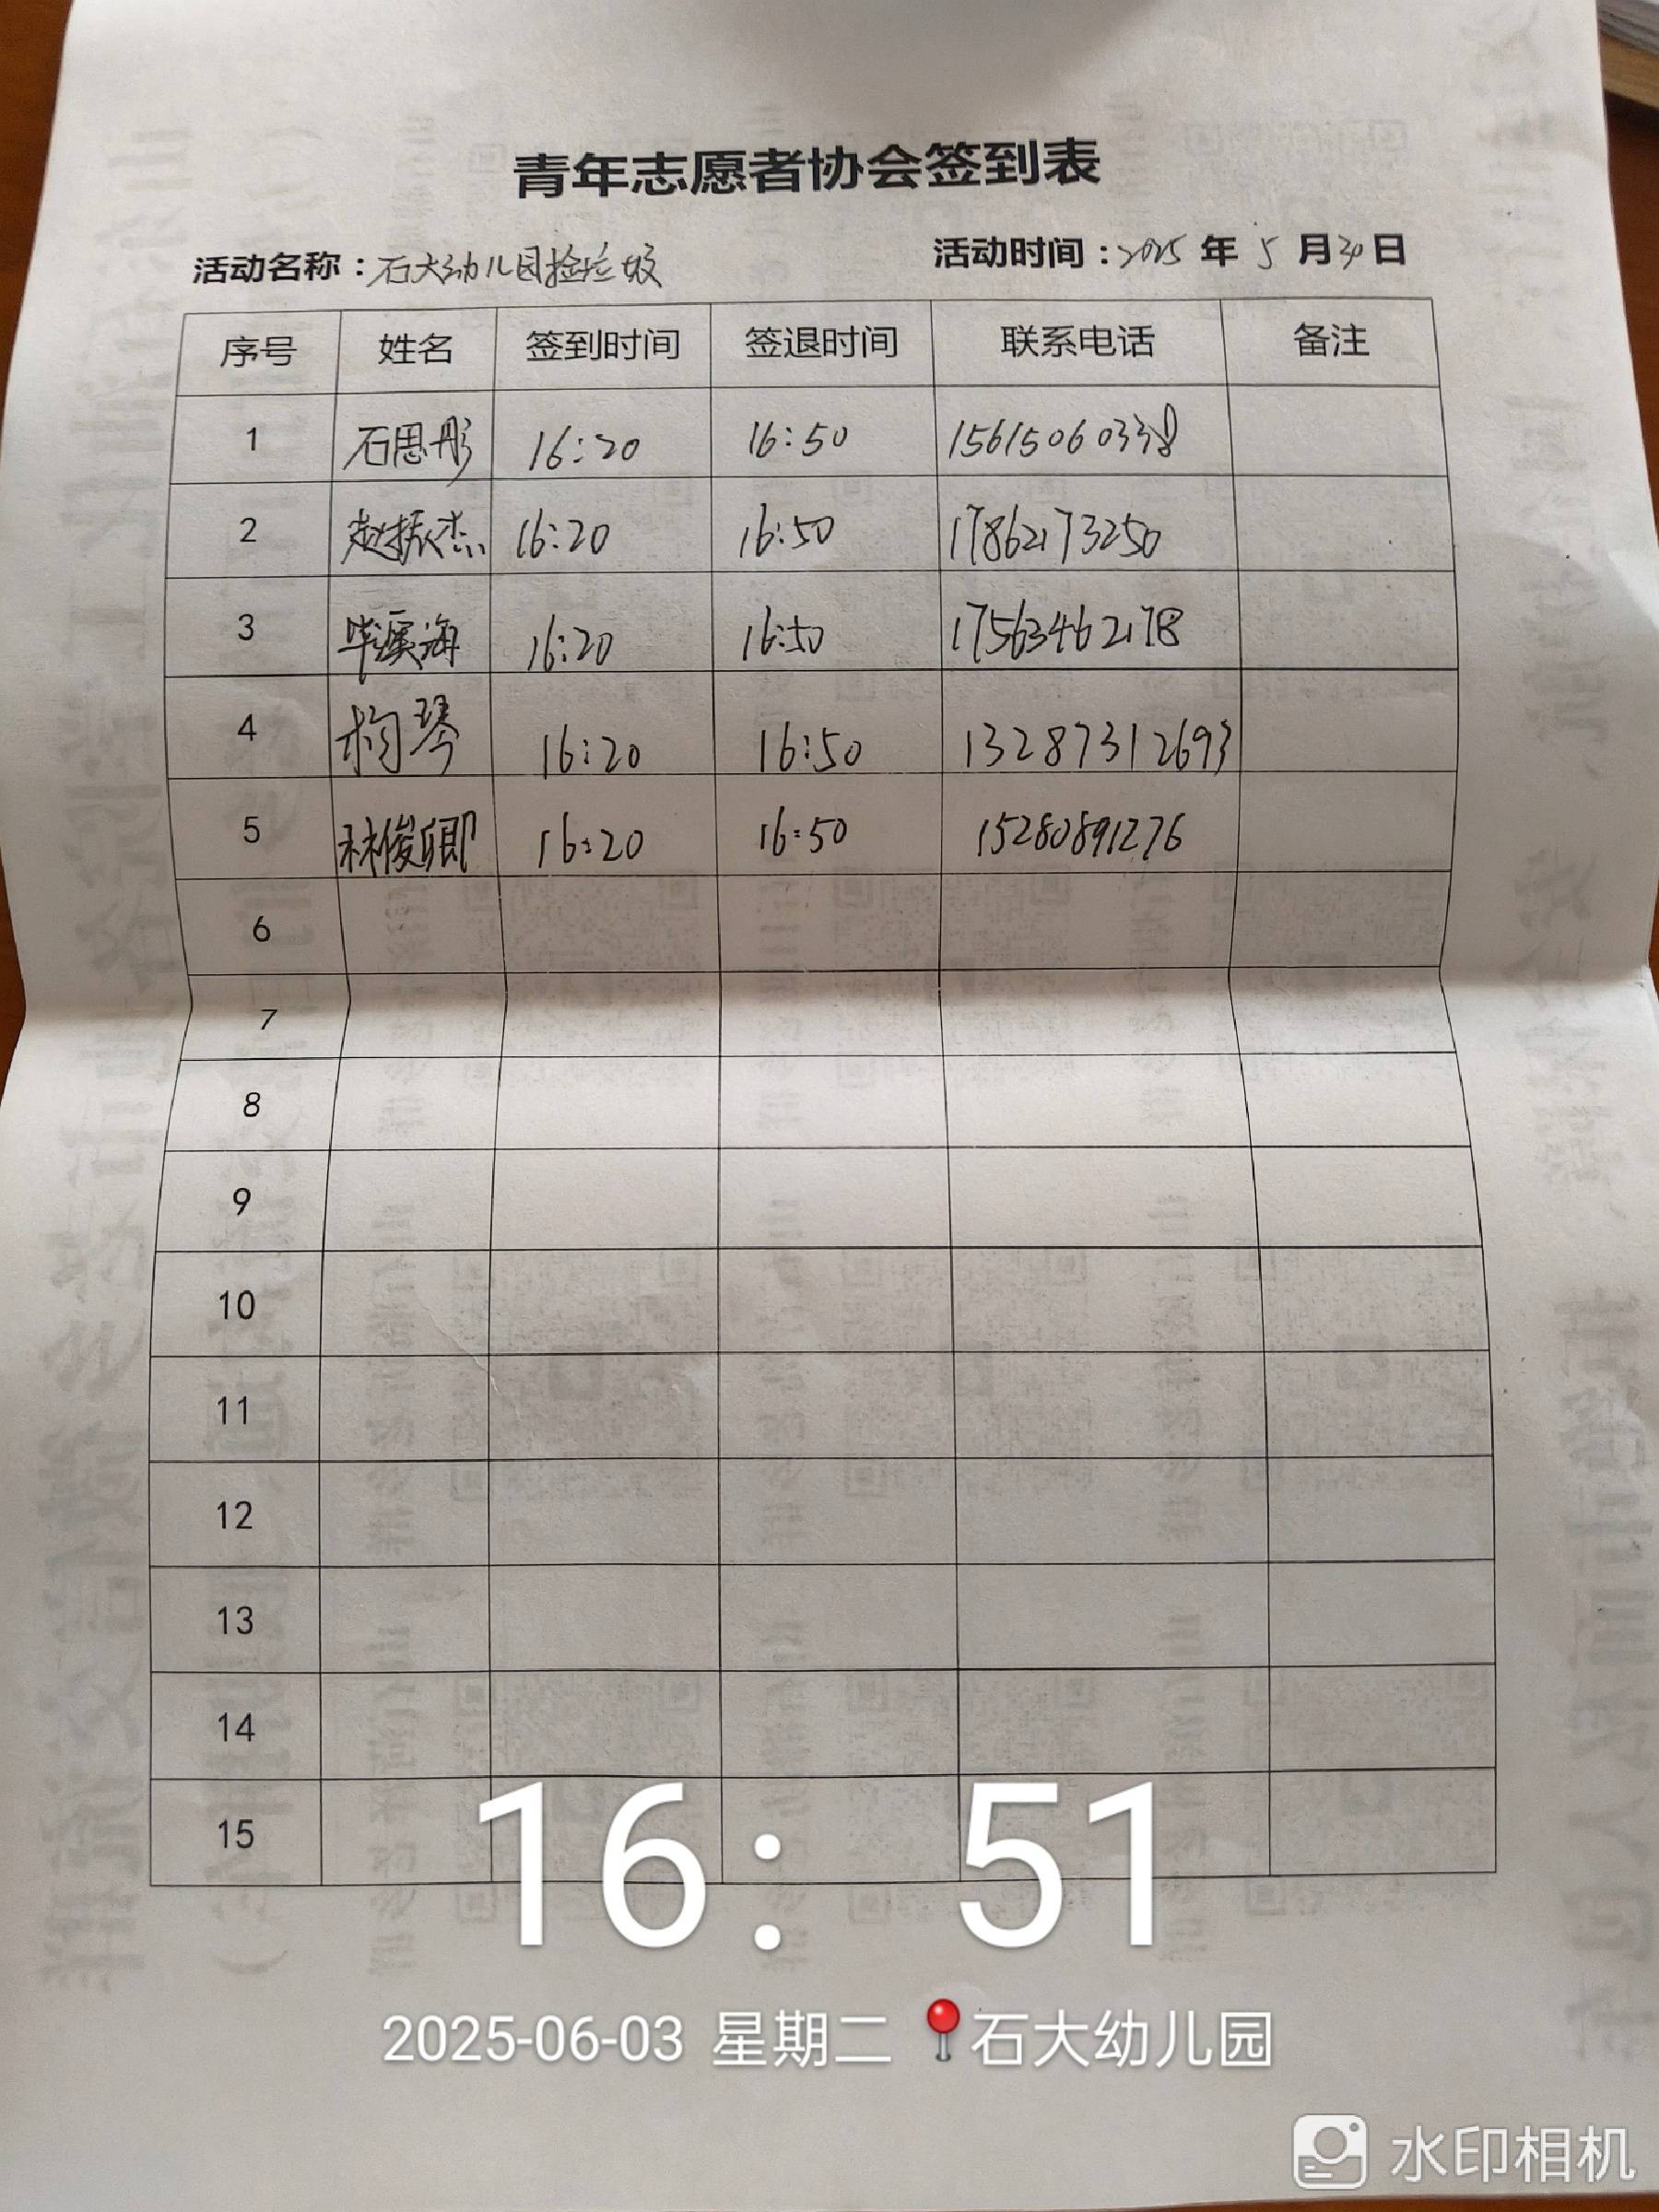 青年志愿者协会签到表
活动名称：石大幼儿园捡垃圾 活动时间：2025 年 5 月 30 日
序号 姓名 签到时间 签退时间 联系电话 备注
1 石思彤 16:20 16:50 15615060338
2 赵振杰 16:20 16:50 17862173250
3 毕溪海 16:20 16:50 17563462178
4 琴 16:20 16:50 13287312693
5 林俊卿 16:20 16:50 15280891276
6
7
8
9
10
11
12
13
14
15
16:51
2025-06-03 星期二 石大幼儿园
水印相机